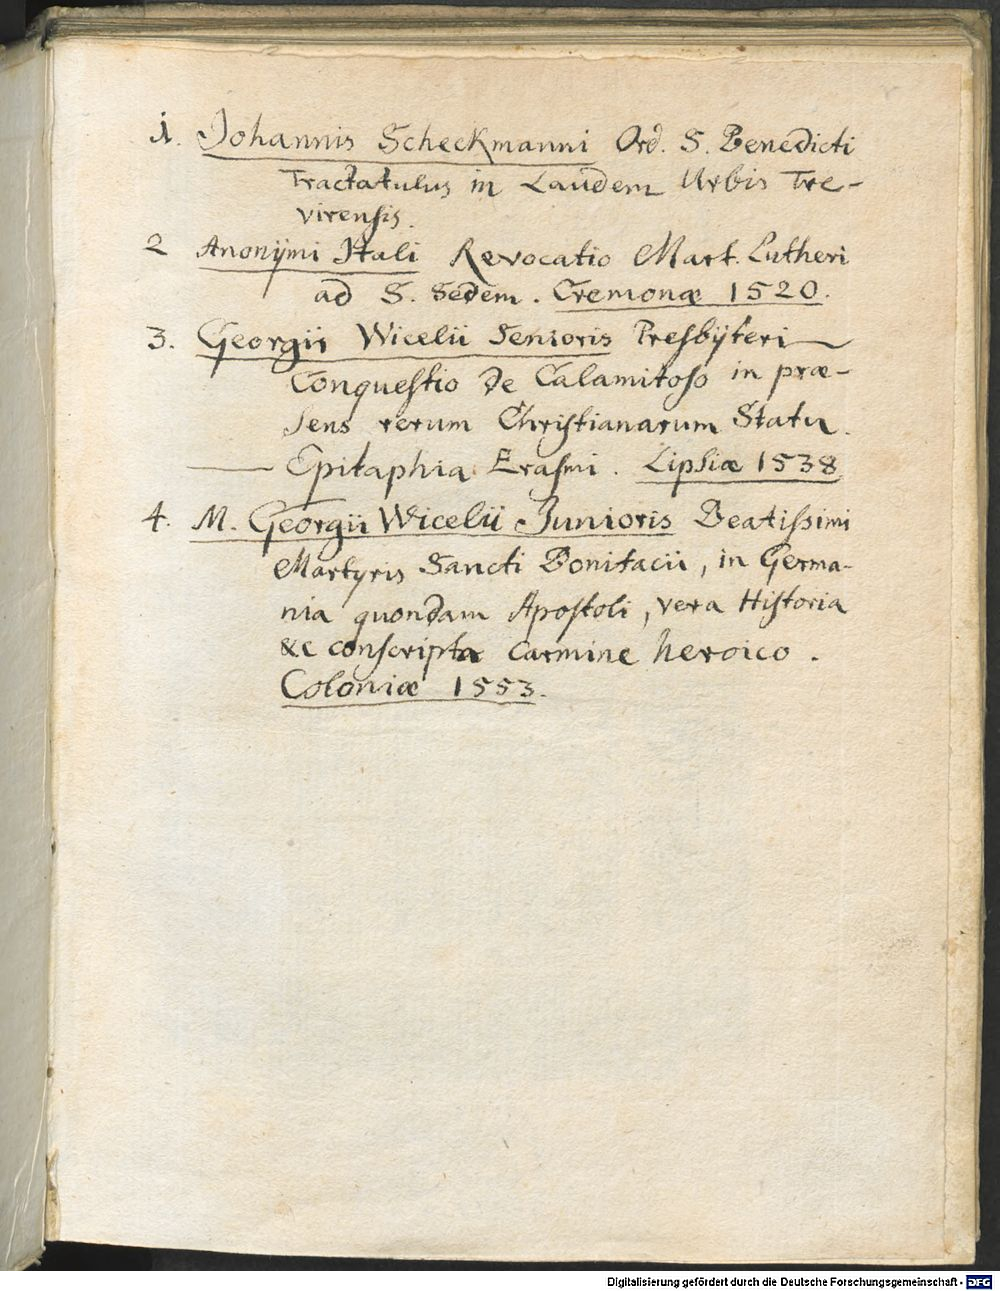 1. Johannis Scheckmanni Ord. S. Benedicti
Tractatulus in Laudem Urbis Tre-
virensis.
2 Anonÿmi Itali Revocatio Mart. Lutheri
ad S. Sedem. Cremonæ 1520.
3. Georgii Wicelii Senioris Presbÿteri
Conquestio de Calamitoso in præ-
sens rerum Christianarum Statu.
— Epitaphia Erasmi. Lipsiæ 1538
4. M. Georgii Wicelii Junioris Beatissimi
Martyris Sancti Bonifacii, in Germa-
nia quondam Apostoli, vera Historia
&c conscripta carmine heroico.
Coloniæ 1553.
Digitalisierung gefördert durch die Deutsche Forschungsgemeinschaft - DFG